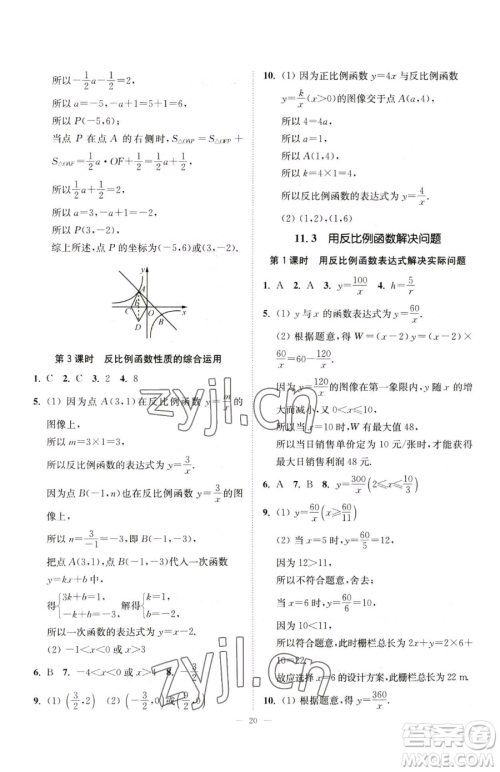 所以-1/2a-a=2,
所以 a=-5,-a+1=5+1=6,
所以 P(-5,6);
当点 P 在点 A 的右侧时,S△OAP=S△OFP+
S△OAF=1/2a·OF+1/2=2,
所以1/2(a-1)+1/2=2,
所以 a=3,-a+1=-3+1=-2,
所以 P(3,-2).
综上所述,点 P 的坐标为(-5,6)或(3,-2).
y
A
B O C x
D
第 3 课时 反比例函数性质的综合运用
1. C 2. C 3. 2 4. 8
5. (1) 因为点 A(3,1)在反比例函数 y=m/x 的
图像上,
所以 m=3×1=3,
所以反比例函数的表达式为 y=3/x.
因为点 B(-1,n)也在反比例函数 y=3/x 的图
像上,
所以 n=3/-1=-3,即 B(-1,-3),
把点 A(3,1),点 B(-1,-3)代入一次函数
y=kx+b 中,
得{3k+b=1, -k+b=-3, 解得{k=1, b=-2,
所以一次函数的表达式为 y=x-2.
(2) -1<x<0 或 x>3.
6. B 7. -4<x<0 或 x>4 8.
9. (1) (3/2,2) (2) (-3/2,0)或(9/2,0)
10. (1) 因为正比例函数 y=4x 与反比例函数
y=k/x(x>0)的图像交于点 A(a,4),
所以 4=4a,
所以 a=1,
所以 A(1,4),
所以 k=4×1=4,
所以反比例函数的表达式为 y=4/x.
(2) (1,2),(1,6)
11.3 用反比例函数解决问题
第 1 课时 用反比例函数表达式解决实际问题
1. A 2. A 3. y=100/x 4. h=5/r
5. (1) y 与 x 的函数表达式为 y=60/x.
(2) 根据题意,得 W=(x-2)·60/x=
60-120/x.
因为 y=120/x 的图像在第一象限内,y 随 x 的
增大而减小,又 0<x≤10,
所以当 x=10 时,W 有最大值 48.
答:当日销售单价定为 10 元/个时,才能获
得最大日销售利润 48 元.
6. A 7. B 8. y=300/x(2≤x≤10/3)
9. (1) y=60/x(x≥60/11)
(2) 当 x=5 时,y=60/5=12,
因为 12>11,
所以不符合题意,舍去;
当 x=6 时,y=60/6=10,
因为 10<11,
所以符合题意,此时栅栏总长为 2x+y=2×6+
10=22.
答:应选择 x=6 的设计方案,此栅栏总长为 22 m.
10. (1) 根据题意,得 y=360/x.
20
zyjl.cn
zyjl.cn
答案圈
MXQE.COM